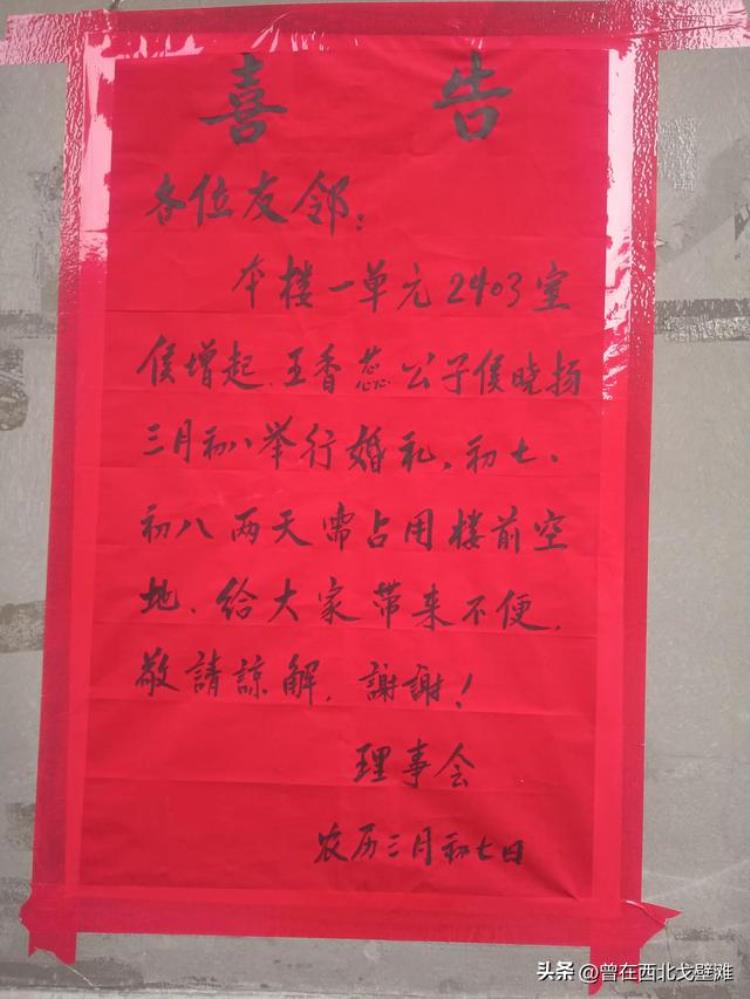 喜告
各位友邻：
本楼一单元2403室
侯增起、王香蕊公子侯晓扬
三月初八举行婚礼，初七、
初八两天需占用楼前空
地，给大家带来不便，
敬請諒解，謝謝！
理事会
农历三月初七日
头条 @曾在西北戈壁滩